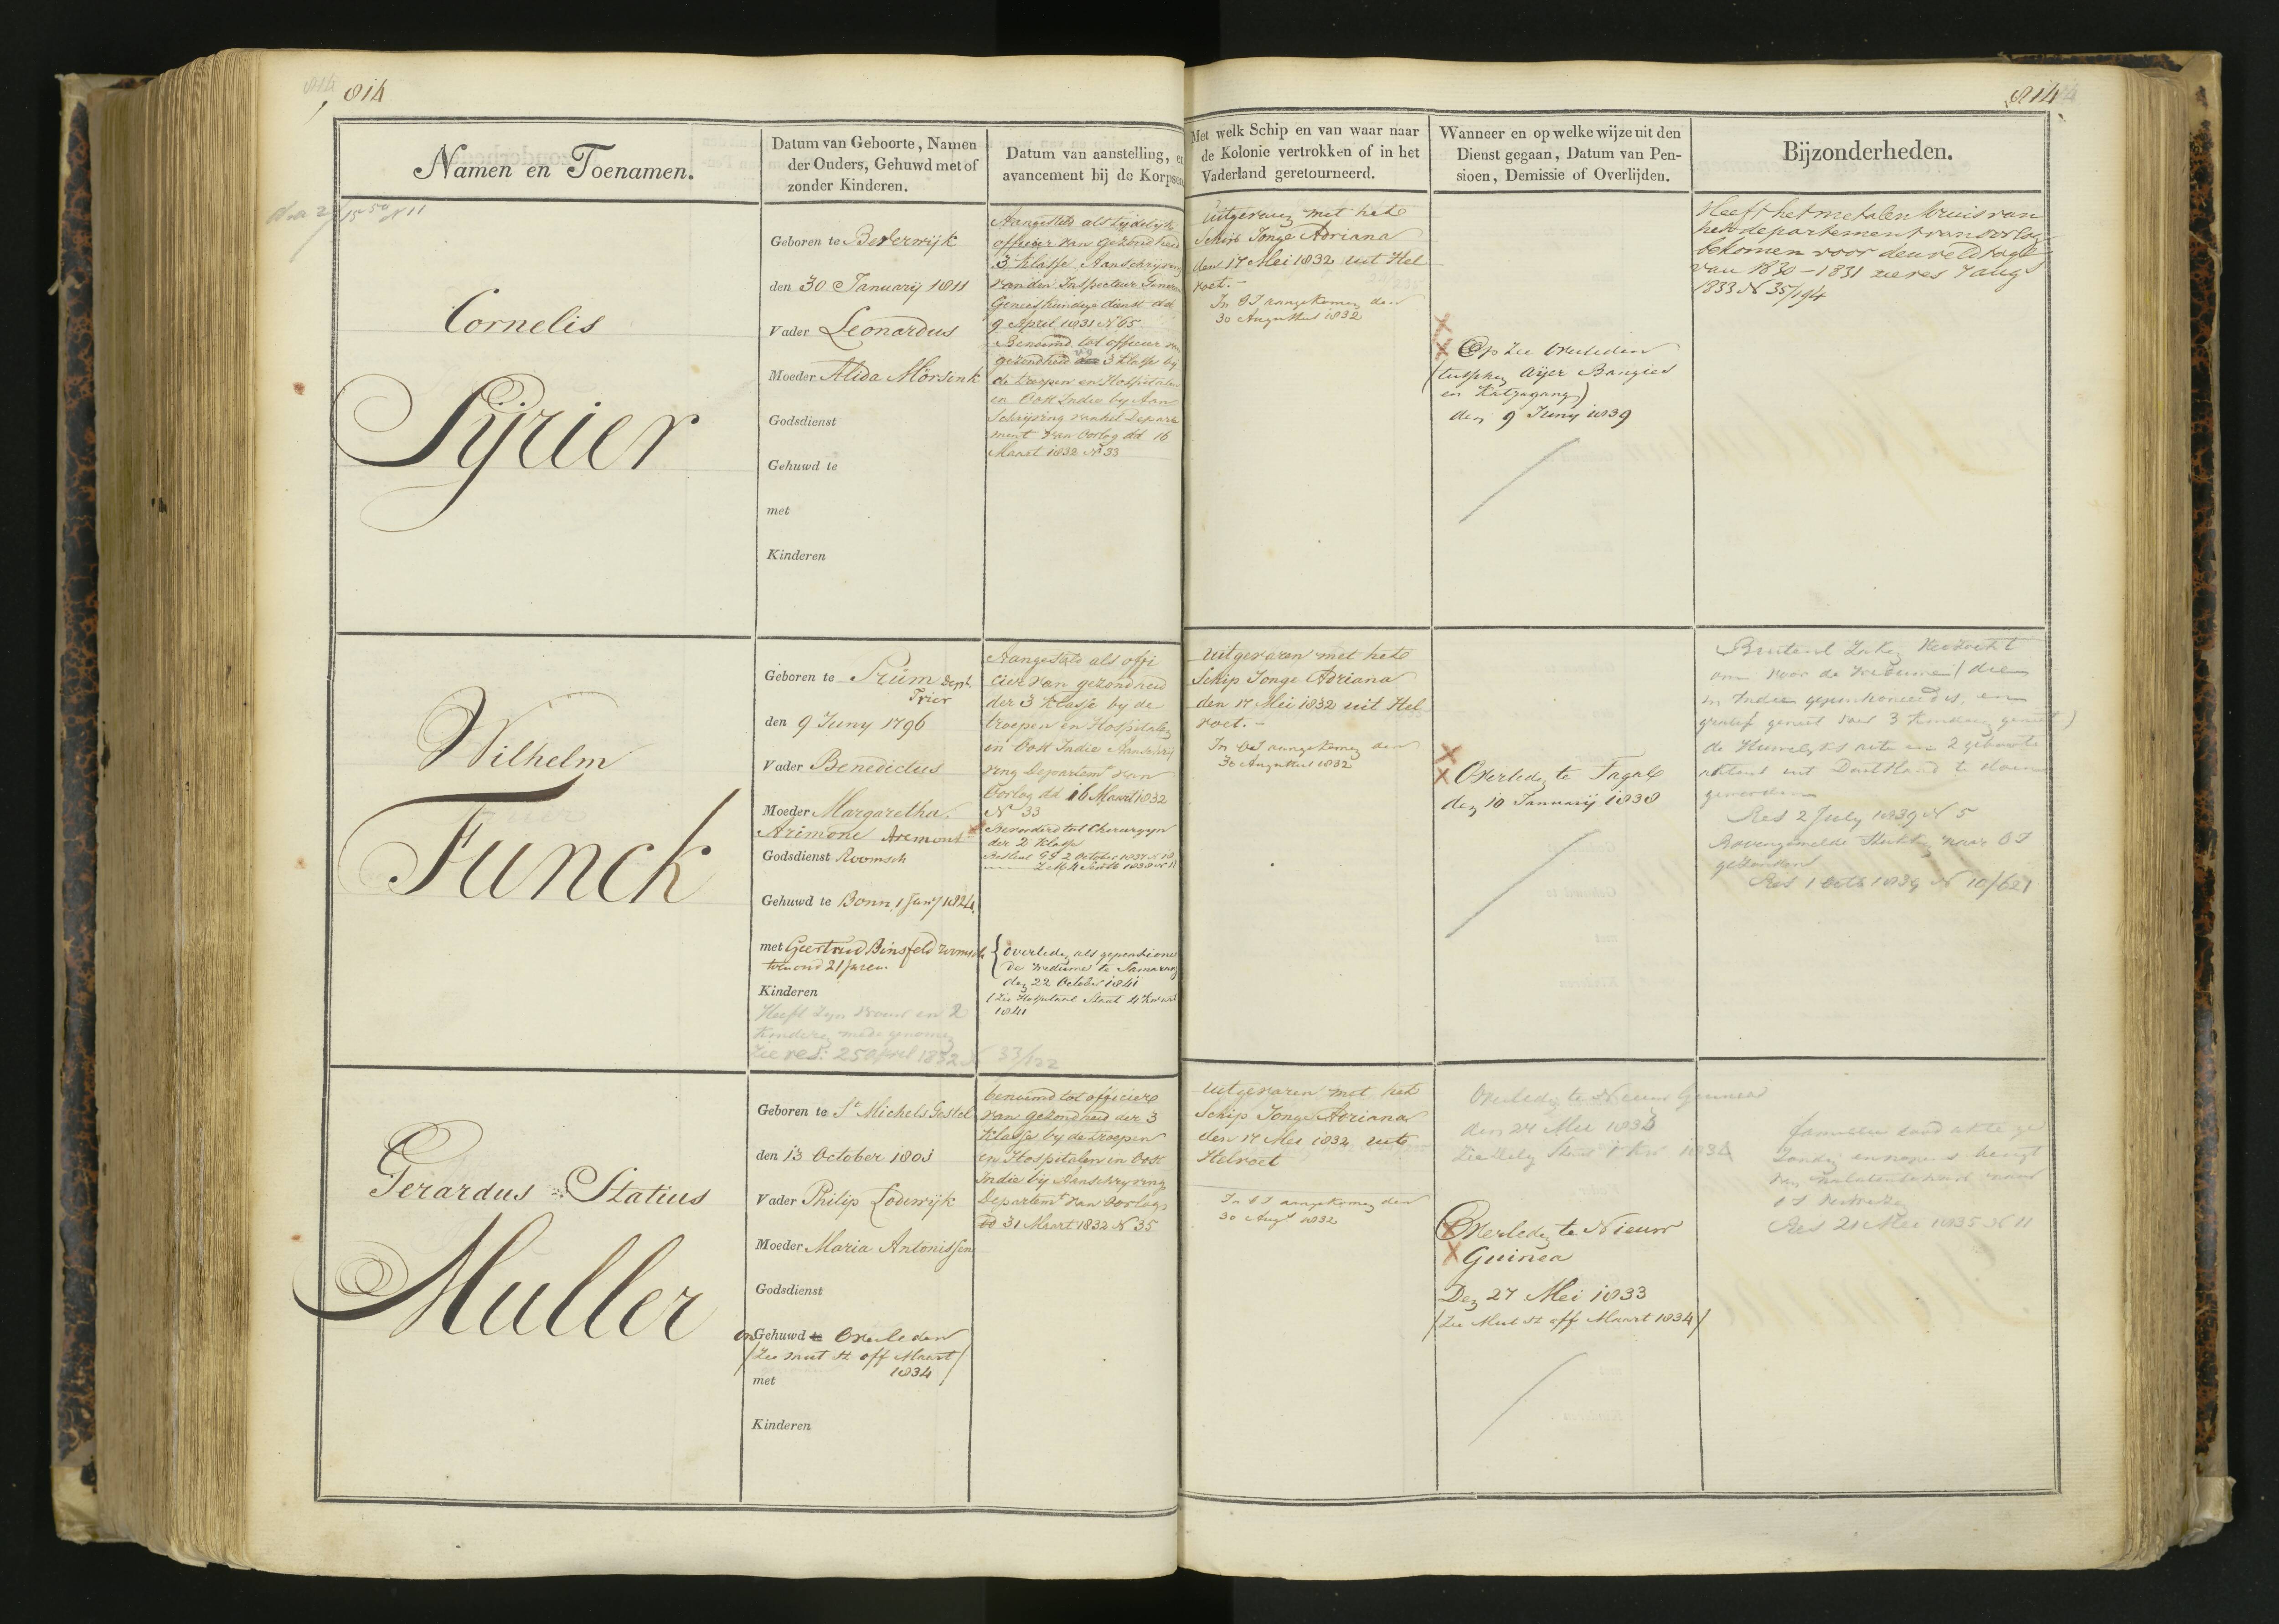 814
814
Namen en Toenamen.
Datum van Geboorte, Namen
der Ouders, Gehuwd met of
zonder Kinderen.
Datum van aanstelling, en
avancement bij de Korpsen
Met welk Schip en van waar naar
de Kolonie vertrokken of in het
Vaderland geretourneerd.
Wanneer en op welke wijze uit den
Dienst gegaan, Datum van Pen-
sioen, Demissie of Overlijden.
Bijzonderheden.
Cornelis
Pijrier
Geboren te Beverwijk
den 30 Januarij 1811
Vader Leonardus
Moeder Alida Mörsink
Godsdienst
Gehuwd te
met
Kinderen
Aangesteld als tijdelijk
officier van gezondheid
3e Klasse Aanschrijving
van den Inspecteur Generaal
Geneeskundige dienst dd
9 April 1831 N 65
Benoemd tot officier van
gezondheid 3 Klasse bij
de troepen en Hospitalen
in Oost Indie by Aan
schrijving van het Departe
ment van Oorlog dd 16
Maart 1832 No 33
Uitgevaren met het
Schip Jonge Adriana
den 17 Mei 1832 uit Hel
voet.-
In OI aangekomen den
30 Augustus 1832
Op zee overleden
(tusschen Aijer Bangies
en Katjagang)
den 9 Juny 1839
Heeft het metalen kruis van
het departement van oorlog
bekomen voor den veldtogt
van 1830-1831 zie res 7 aug
1833 N 35/194
Wilhelm
Funck
Geboren te Prüm Dept.
Trier
den 9 Juny 1796
Vader Benedictus
Moeder Margaretha
Arimone Aremont
Godsdienst Roomsch
Gehuwd te Bonn 1 Jany 1824
met Geertrud Binsfeld roomsch
oud 21 jaren.
Kinderen
Heeft zyn vrouw en 2
kinderen mede genomen
Zie res: 25 April 1832 N 33/122
Aangesteld als offi
cier van gezondheid
der 3 Klasse by de
troepen en Hospitalen
in Oost Indie Aanschrij
ving Departemt van
Oorlog dd 16 Maart 1832
No 33
Bevorderd tot Chirurgyn
der 2 Klasse
Besluit GG 2 October 1837 N 10
{overleden als gepensioneer
de weduwe te Samarang
den 22 October 1841
1841
Uitgevaren met het
Schip Jonge Adriana
den 17 Mei 1832 uit Hel
voet.-
In OI aangekomen den
30 Augustus 1832
Overleden te Tagal
den 10 Januarij 1838
om voor de weduwe (die
in Indie gepensioneerd is, en
de Huwelyks acte en 2 geboorte
akten uit Duitsland te doen
geworden
Res 2 July 1839 N 5
Bovengemelde Stukken naar OI
gezonden
Res 1 Octb 1839 N 10/621
Gerardus Statius
Muller
Geboren te St Michels Gestel
den 13 October 1803
Vader Philip Lodewijk
Moeder Maria Antonissen
Godsdienst
onGehuwd te Overleden
(Zie mut st off Maart
1834)
met
Kinderen
benoemd tot officier
van gezondheid der 3
Klasse by de troepen
en Hospitalen in Oost
Indie bij Aanschryving
Departemt van Oorlog
dd 31 Maart 1832 N 35
Uitgevaren met het
Schip Jonge Adriana
den 17 Mei 1832 uit
Helvoet
In OI aangekomen den
30 Augt 1832
Overleden te Nieuw Guinea
den 27 Mei 1833
Overleden te Nieuw
Guinea
Den 27 Mei 1833
(Zie Mut st off Maart 1834)
Res 21 Mei 1835 N 11